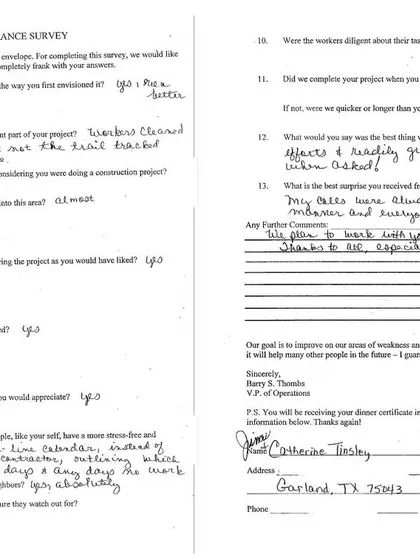 ANCE SURVEY
envelope. For completing this survey, we would like
ompletely frank with your answers.
the way you first envisioned it? yes, even
better
nt part of your project? Workers cleaned
not the trail tracked
onsidering you were doing a construction project?
into this area? almost
ring the project as you would have liked? yes
ed? yes
ou would appreciate? yes
ple, like your self, have a more stress-free and
line calendar, instead of
contractor, outlining which
days & any days no work
ghbors? yes, absolutely
ure they watch out for?
10. Were the workers diligent about their tas
11. Did we complete your project when you
If not, were we quicker or longer than yo
12. What would you say was the best thing
efforts & readily
when asked!
13. What is the best surprise you received fro
My calls were
manner and
Any Further Comments:
We plan to work with
Thanks to all,
Our goal is to improve on our areas of weakness an
it will help many other people in the future – I guar
Sincerely,
Barry S. Thombs
V.P. of Operations
P.S. You will be receiving your dinner certificate in
information below. Thanks again!
Name Catherine Tinsley
Address
Garland, TX 75043
Phone